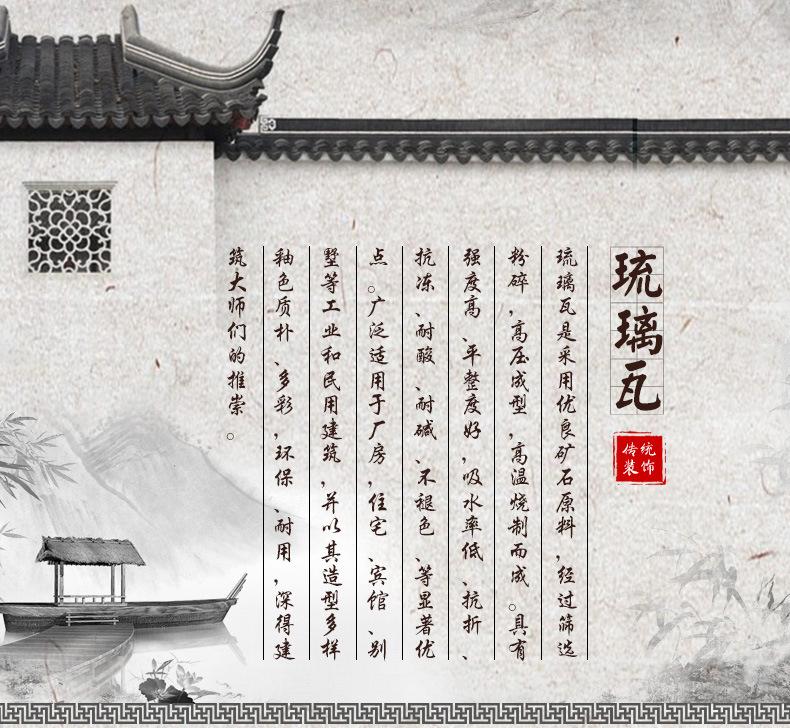 琉璃瓦
传统
装饰
琉璃瓦是采用优良矿石原料，经过筛选
粉碎，高压成型，高温烧制而成。具有
强度高、平整度好，吸水率低、抗折、
抗冻、耐酸、耐碱、不褪色、等显著优
点。广泛适用于厂房，住宅、宾馆、别
墅等工业和民用建筑，并以其造型多样
釉色质朴、多彩，环保、耐用，深得建
筑大师们的推崇。